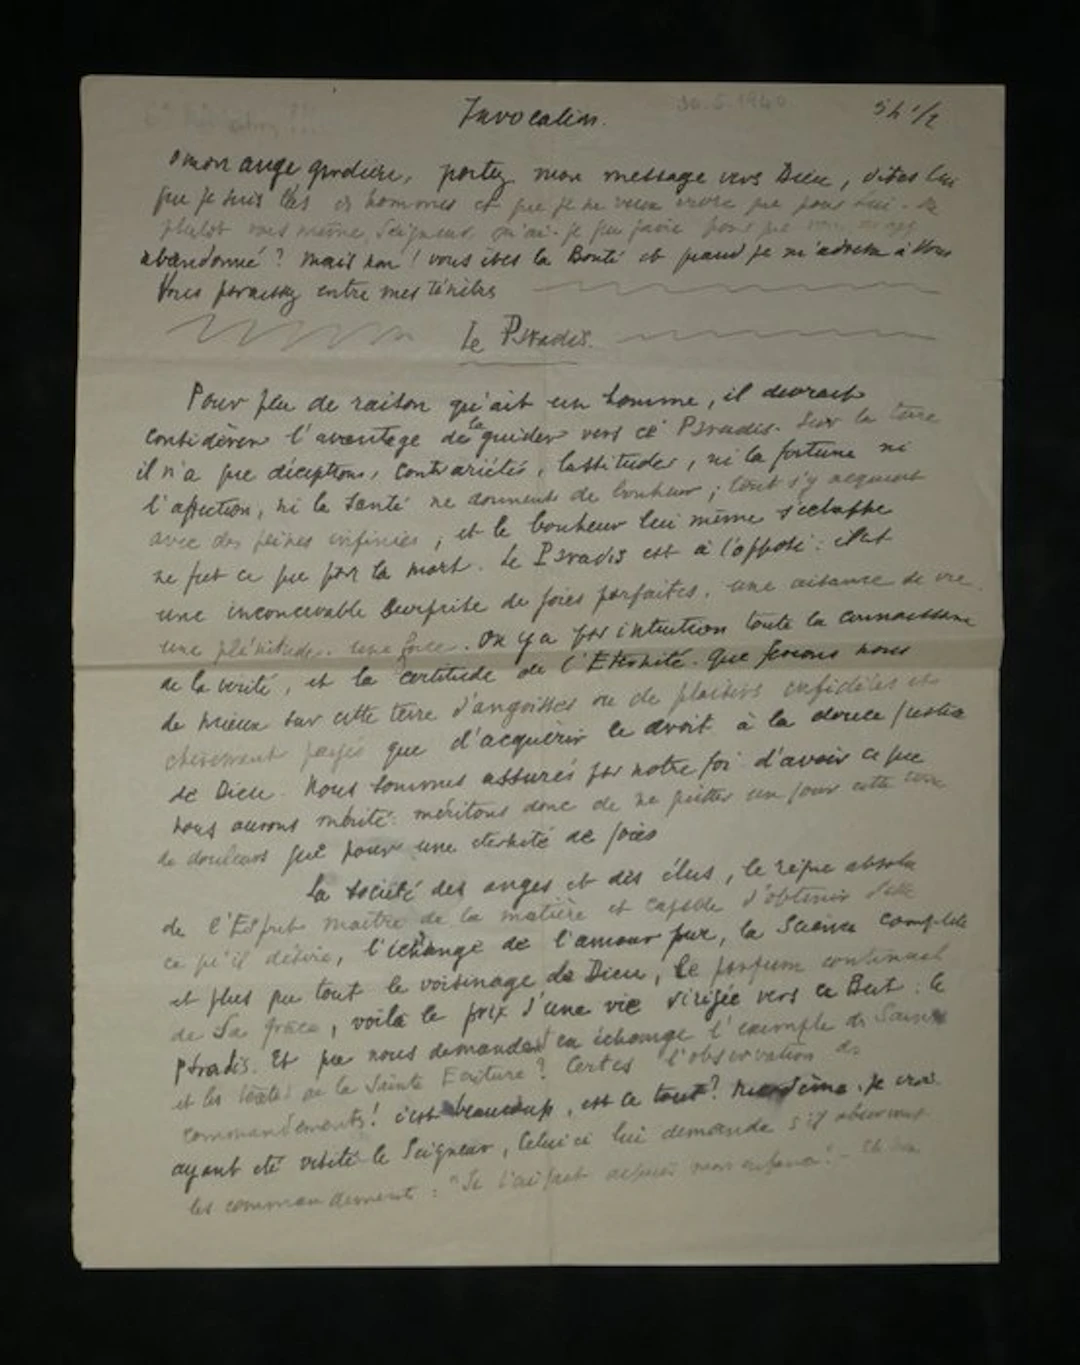 Invocation. 30.5.1940 5h 1/2
O mon ange gardien, portez mon message vers Dieu, dites lui
que je suis las des hommes et que je ne veux vivre que pour lui. Ou
plutot vous même, Seigneur qu'ai-je pu faire pour que vous m'ayez
abandonné? Mais non! vous êtes la Bonté et quand je m'adresse à Vous
Vous paraissez entre mes ténèbres
Le Paradis.
Pour peu de raison qu'ait un homme, il devrait
considérer l'avantage de la guider vers ce Paradis. Sur la terre
il n'a que déceptions, contrariétés, lassitudes, ni la fortune ni
l'affection, ni la santé ne donnent de bonheur; tout s'y acquiert
avec des peines infinies, et le bonheur lui même s'échappe
ne fut ce que par la mort. Le Paradis est à l'opposé: c'est
une inconcevable de joies parfaites. une aisance de vie
une plénitude. une force. On y a par intuition toute la connaissance
de la vérité, et la certitude de l'Eternité. Que ferions nous
de mieux sur cette terre d'angoisses ou de plaisirs infidèles et
chèrement payés que d'acquérir le droit à la douce Justice
de Dieu. Nous sommes assurés par notre foi d'avoir ce que
nous aurons mérité: méritons donc de ne quitter un jour cette terre
de douleurs que pour une eternité de joies
La Société des anges et des élus, le règne absolu
de l'Esprit maître de la matière et capable d'obtenir d'elle
ce qu'il désire, l'échange de l'amour pur, la Science complète
et plus que tout le voisinage de Dieu, le parfum continuel
de Sa grâce, voilà le prix d'une vie dirigée vers ce But: le
Paradis. Et que nous demande en échange l'exemple des Saints
et les textes de la Sainte Ecriture? Certes l'observation des
commandements! c'est beaucoup, est ce tout? je crois
ayant été visité le Seigneur, Celui ci lui demande s'il observait
les commandements: "Je l'ai fait depuis mon enfance!"